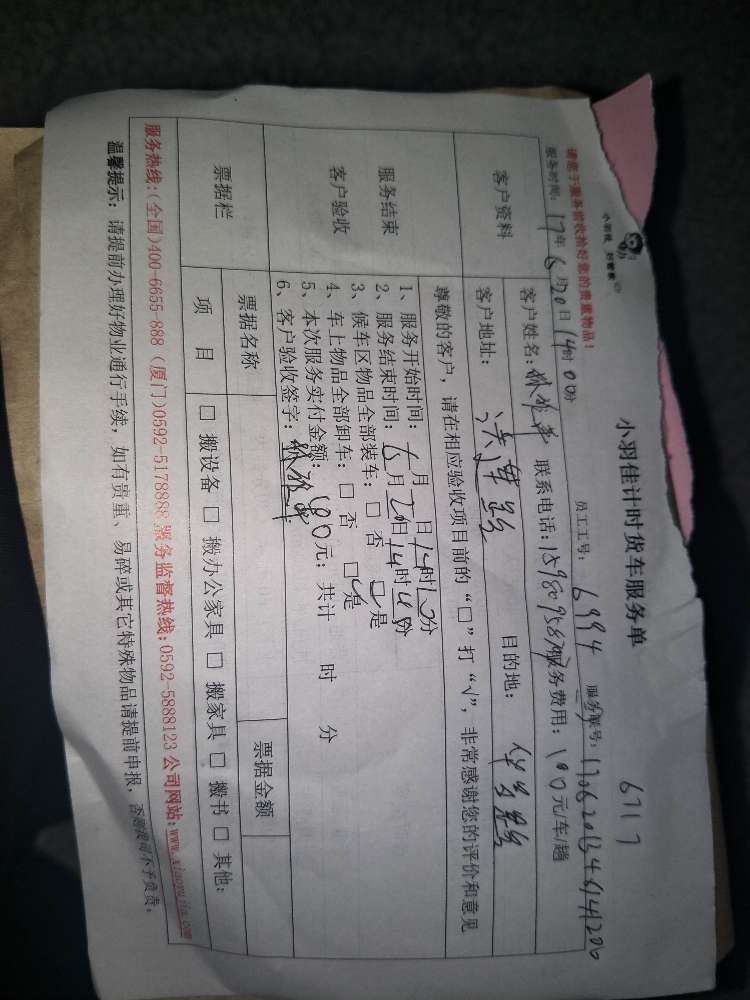 小羽佳计时货车服务单
6717
小羽佳 好管家
请您于服务前收拾好您的贵重物品!
服务时间: 17年6月20日14时00分 员工工号: 6994 服务账号:
客户资料
客户姓名: 联系电话: 服务费用: 100元/车/趟
客户地址: 目的地:
服务结束
客户验收
尊敬的客户,请在相应验收项目前的“□”打“√”,非常感谢您的评价和意见
1、服务开始时间: 月 日14时 分
2、服务结束时间: 6月20日14时 分
3、候车区物品全部装车: □ 否 □ 是
4、车上物品全部卸车: □ 否 □ 是
5、本次服务实付金额: 100元; 共计 时 分
6、客户验收签字:
票据栏
票据名称
票据金额
项 目
□ 搬设备 □ 搬办公家具 □ 搬家具 □ 搬书 □ 其他:
服务热线:(全国)400-6655-888 (厦门)0592-5178888 服务监督热线:0592-5888123 公司网站:www.xiaoyujia.com
温馨提示: 请提前办理好物业通行手续,如有贵重、易碎或其它特殊物品请提前申报,否则我司不予负责。